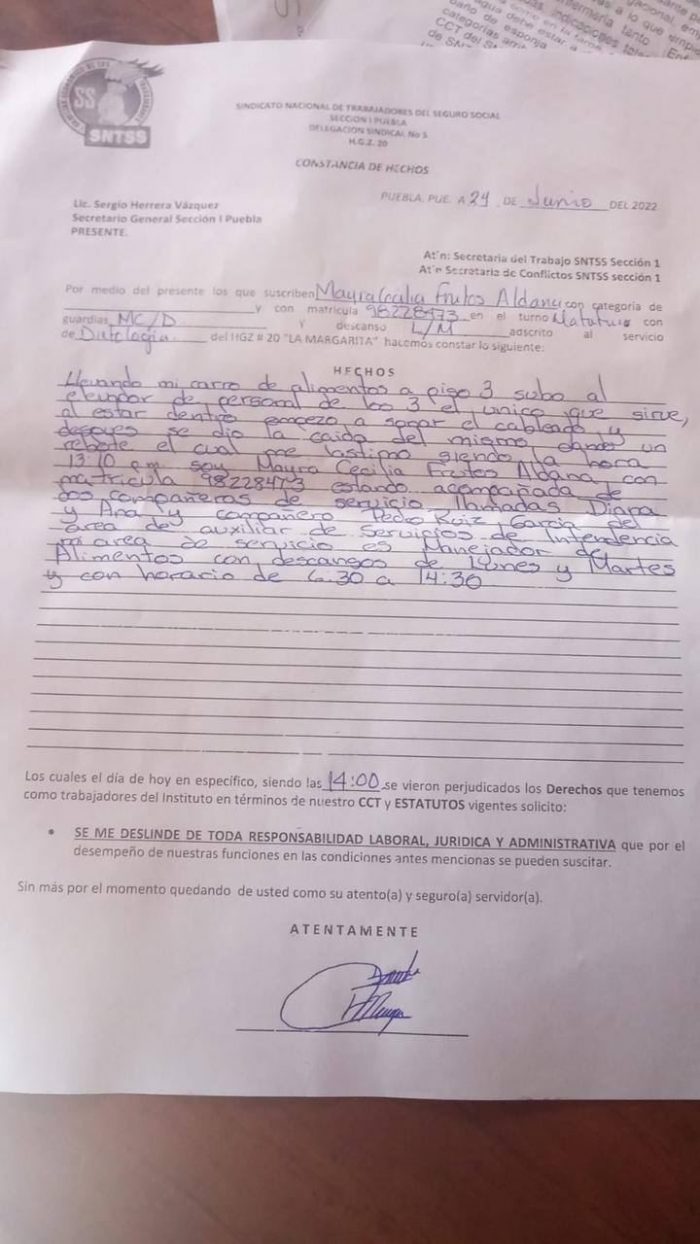 SS
SNTSS
SINDICATO NACIONAL DE TRABAJADORES DEL SEGURO SOCIAL
SECCION I PUEBLA
DELEGACION SINDICAL No 3
H.G.Z. 20
CONSTANCIA DE HECHOS
PUEBLA, PUE. A 24 DE Junio DEL 2022
Lic. Sergio Herrera Vázquez
Secretario General Sección I Puebla
PRESENTE.
At´n: Secretaria del Trabajo SNTSS Sección 1
At´n Secretaria de Conflictos SNTSS sección 1
Por medio del presente los que suscriben Mayra Cecilia Frutos Aldana con categoría de
y con matricula 98228473 en el turno Matutino con
guardias MC/D y descanso L/M adscrito al servicio
de Dietologia del HGZ # 20 "LA MARGARITA" hacemos constar lo siguiente:
HECHOS
Llevando mi carro de alimentos a piso 3 subo al
elevador de personal de los 3 el unico que sirve,
al estar dentro empezo a sonar el cableado y
despues se dio la caida del mismo dando un
rebote el cual me lastimo siendo la hora
13:10 p.m. soy Mayra Cecilia Frutos Aldana con
matricula 98228473 estando acompañada de
dos compañeras de servicio llamadas Diana
y Ana y compañero Pedro Ruiz Garcia del
area de auxiliar de Servicios de Intendencia
mi area de servicio es Manejador de
Alimentos con descansos de Lunes y Martes
y con horario de 6:30 a 14:30
Los cuales el día de hoy en específico, siendo las 14:00 se vieron perjudicados los Derechos que tenemos
como trabajadores del Instituto en términos de nuestro CCT y ESTATUTOS vigentes solicito:
• SE ME DESLINDE DE TODA RESPONSABILIDAD LABORAL, JURIDICA Y ADMINISTRATIVA que por el
desempeño de nuestras funciones en las condiciones antes mencionas se pueden suscitar.
Sin más por el momento quedando de usted como su atento(a) y seguro(a) servidor(a).
ATENTAMENTE